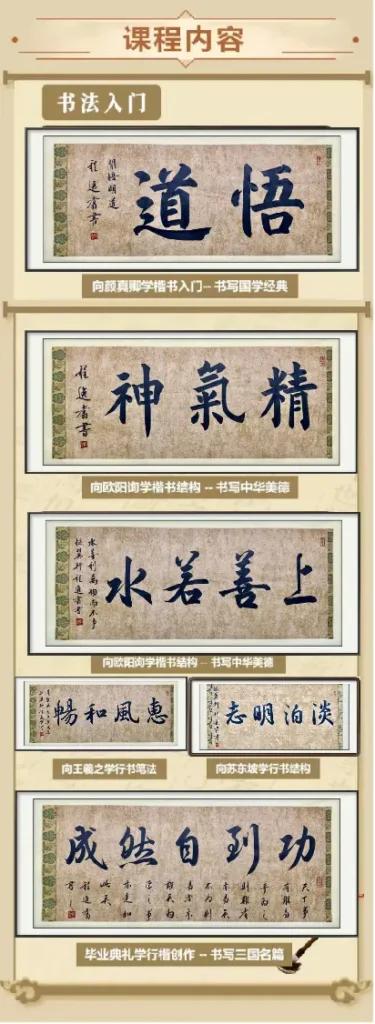 课程内容
书法入门
悟道
程远斋书
向颜真卿学楷书入门--书写国学经典
精氣神
向欧阳询学楷书结构--书写中华美德
上善若水
水善利萬物而不争
向欧阳询学楷书结构--书写中华美德
惠風和暢
淡泊明志
向王羲之学行书笔法
向苏东坡学行书结构
功到自然成
毕业典礼学行楷创作--书写三国名篇